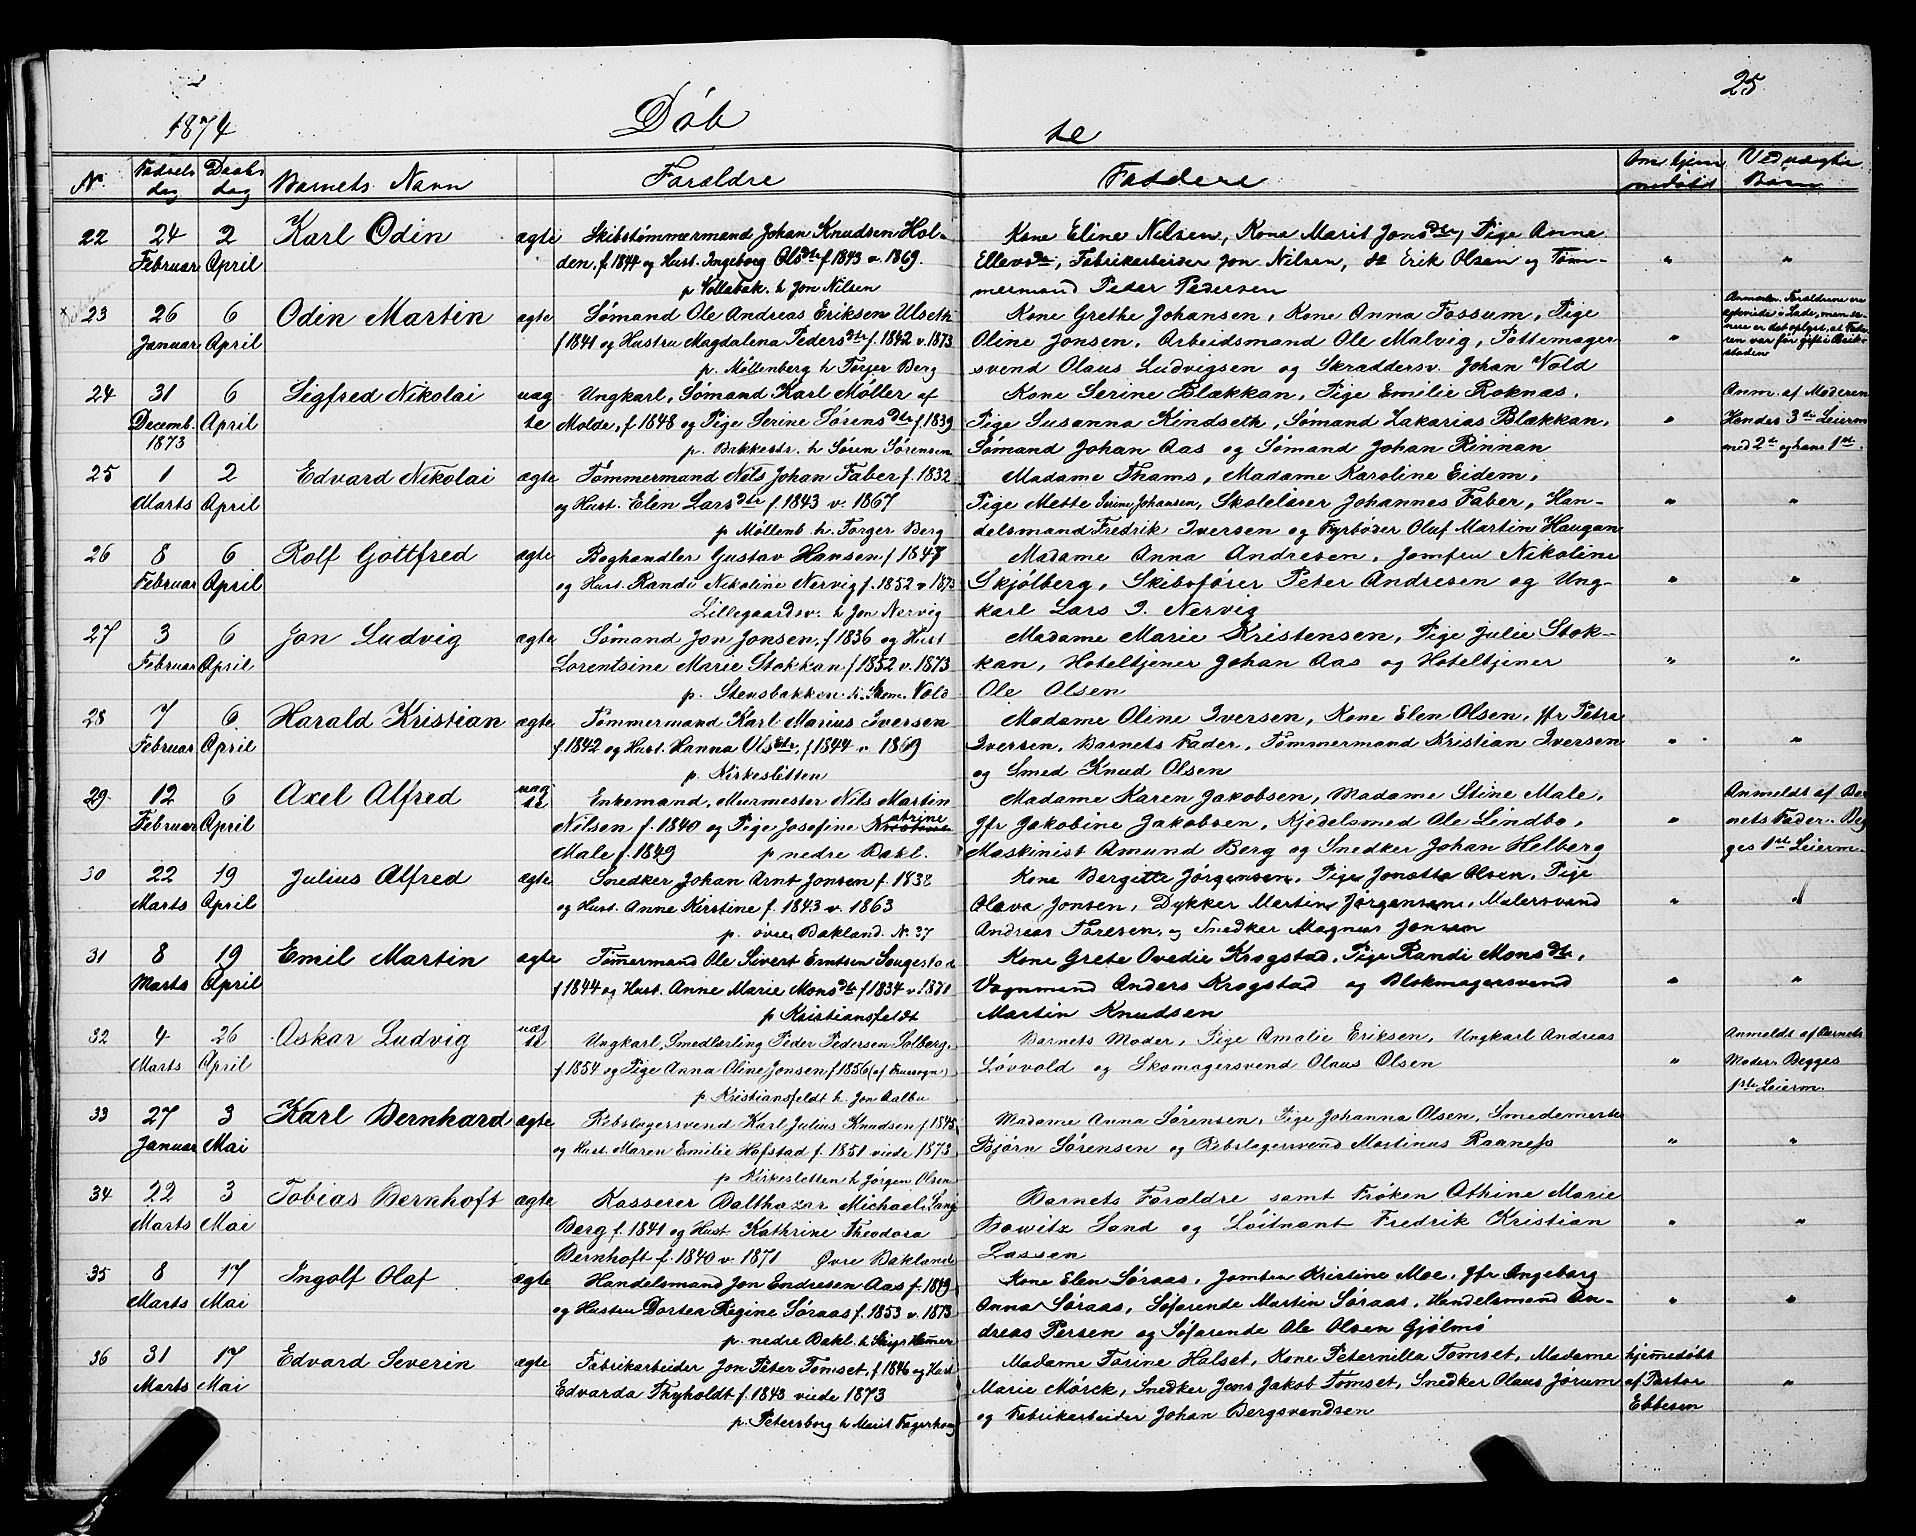 25
1874 Døbte
No. Fødselsdag Daabsdag Barnets Navn Forældre Faddere Om hjemmedøbt Ved uægte Børn
22 24 Februar 2 April Karl Odin ægte
Skibstømmermand Johan Knudsen Hol-
den, f. 1844 og Hust. Ingeborg Olsdtr f. 1843 v. 1869.
p. Vollabak. h Jon Nilsen
Kone Eline Nilsen, Kone Marit Jonsdtr, Pige Anne
Ellevsdtr, Fabrikarbeider Jon Nilsen, do Erik Olsen og Tøm-
mermand Peder Pedersen
" "
23 26 Januar 6 April Odin Martin ægte
Sømand Ole Andreas Eriksen Ulseth
f 1841 og Hustru Magdalena Pedersdtr f. 1842 v. 1873
p. Møllenberg h Torger Berg
Kone Grethe Johansen, Kone Anna Fossum, Pige
Oline Jonsen, Arbeidsmand Ole Malvig, Pottemager-
svend Olaus Ludvigsen og Skraddersv. Johan Wold
"
Forældrene ere
ægteviede i Lade, men se-
nere er det oplyst, at Fade-
ren var før gift i
24 31 Decemb. 1873 6 April Sigfred Nikolai uægte
Ungkarl, Sømand Karl Møller af
Molde, f. 1848 og Pige Serine Sørensdtr f. 1839
p. Bakkestr. h Søren Sørensen
Kone Serine Blækkan, Pige Emilie Roknæs,
Pige Susanna Kindseth, Sømand Zakarias Blækkan,
Sømand Johan Aas og Sømand Johan Rinnan
"
Anm. af Moderen
Hendes 3die Leierm
med 2den og hans 1ste
25 1 Marts 2 April Edvard Nikolai ægte
Tømmermand Nils Johan Faber f. 1832
og Hust. Elen Larsdtr f. 1843 v. 1867
p Møllenb. h. Torger Berg
Madame Thams, Madame Karoline Eidem,
Pige Mette Irine Johansen, Skolelærer Johannes Faber, Han-
delsmand Fredrik Iversen og Fyrbøder Oluf Martin Haugan
" "
26 8 Februar 6 April Rolf Gottfred ægte
Boghandler Gustav Hansen f 1847
og Hust. Randi Nikoline Nervig f. 1852 v 1873
Lillegaardsv. h Jon Nervig
Madame Anna Andresen, Jomfru Nikoline
Skjølberg, Skibsfører Peter Andresen og Ung-
karl Lars J. Nervig
" "
27 3 Februar 6 April Jon Ludvig ægte
Sømand Jon Jonsen, f 1836 og Hust
Lorentsine Marie Stokkan f 1852 v. 1873
p. Stensbakken h. Vold
Madame Marie Kristensen, Pige Julie Stok-
kan, Hoteltjener Johan Aas og Hoteltjener
Ole Olsen
" "
28 7 Februar 6 April Harald Kristian ægte
Tømmermand Karl Marius Iversen
f. 1842 og Hust. Hanna Olsdtr, f 1844 v. 1869
p. Kirkesletten
Madame Oline Iversen, Kone Elen Olsen, Jfr Petra
Iversen, Barnets Fader, Tømmermand Kristian Iversen
og Smed Knud Olsen
" "
29 12 Februar 6 April Axel Alfred uægte
Enkemand, Murmester Nils Martin
Nilsen f. 1840 og Pige Josefine Katrine
Male f. 1849 p nedre Bakl.
Madame Karen Jakobsen, Madame Stine Male,
Jfr Jakobine Jakobsen, Kjedelsmed Ole Lindbo,
Maskinist Amund Berg og Snedker Johan Helberg
"
Anmeldt af Bar
nets Fader. Beg
ges 1ste Leierm
30 22 Marts 19 April Julius Alfred ægte
Snedker Johan Arnt Jonsen f. 1838
og Hust. Anne Kirstine f. 1843 v. 1863
p. øvre Bakland. No. 37
Kone Bergitte Jørgensen, Pige Jonetta Olsen, Pige
Olava Jonsen, Dykker Martin Jørgensen, Malersvend
Andreas Toresen, og Snedker Magnus Jonsen
" "
31 8 Marts 19 April Emil Martin ægte
Tømmermand Ole Sivert Erntsen Saugestad
f 1844 og Hust. Anne Marie Monsdtr f 1834 v. 1871
p Kristiansfeldt
Kone Grete Ovedie Krogstad, Pige Randi Monsdtr,
Vognmand Anders Krogstad og Blokmagersvend
Martin Knudsen
" "
32 4 Marts 26 April Oskar Ludvig uægte
Ungkarl, Smedlærling Peder Pedersen Solberg,
f. 1854 og Pige Anna Oline Jonsen f 1856 (af Fruesogn)
p Kristiansfeldt h. Jon Aalbu
Barnets Moder, Pige Amalie Eriksen, Ungkarl Andreas
Løvvold og Skomagersvend Olaus Olsen
"
Anmeldt af Barnets
Moder. Begges
1ste Leierm.
33 27 Januar 3 Mai Karl Bernhard ægte
Rebslagersvend Karl Julius Knudsen f 1845
og Hust. Maren Emilie Hofstad f. 1851 viede 1873
p Kirkesletten h Jørgen Olsen
Madame Anna Sørensen, Pige Johanna Olsen, Smedemester
Bjørn Sørensen og Rebslagersvend Martinus Raaness
" "
34 22 Marts 3 Mai Tobias Bernhoft ægte
Kasserer Balthazar Michael Lange
Berg f. 1841 og Hust. Kathrine Theodora
Bernhoft f. 1840 v. 1871 Øvre Bakland
Barnets Forældre samt Frøken Athine Marie
Bowitz Sand og Løitnant Fredrik Kristian
Lassen
" "
35 8 Marts 17 Mai Ingolf Olaf ægte
Handelsmand Jon Endresen Aas f. 1849
og Hustru Dortea Regine Søraas f. 1853 v. 1873
p. nedre Bakl. h Hammer
Kone Elen Søraas, Jomfru Kristine Moe, Jfr Ingeborg
Anna Søraas, Søfarende Martin Søraas, Handelsmand An-
dreas Persen og Søfarende Ole Olsen Gjølmø
" "
36 31 Marts 17 Mai Edvard Severin ægte
Fabrikarbeider Jon Peter Tomset, f. 1846 og Hust
Edvarda Thyholdt f. 1843 viede 1873
p. Petersborg h Marit Fagerhaug
Madame Torine Halset, Kone Peternilla Tomset, Madame
Marie Mørck, Snedker Jens Jakob Tomset, Snedker Olaus Jørum
og Fabrikarbeider Johan Bergsvendsen
hjemmedøbt
af Pastor
Ebbesen
"